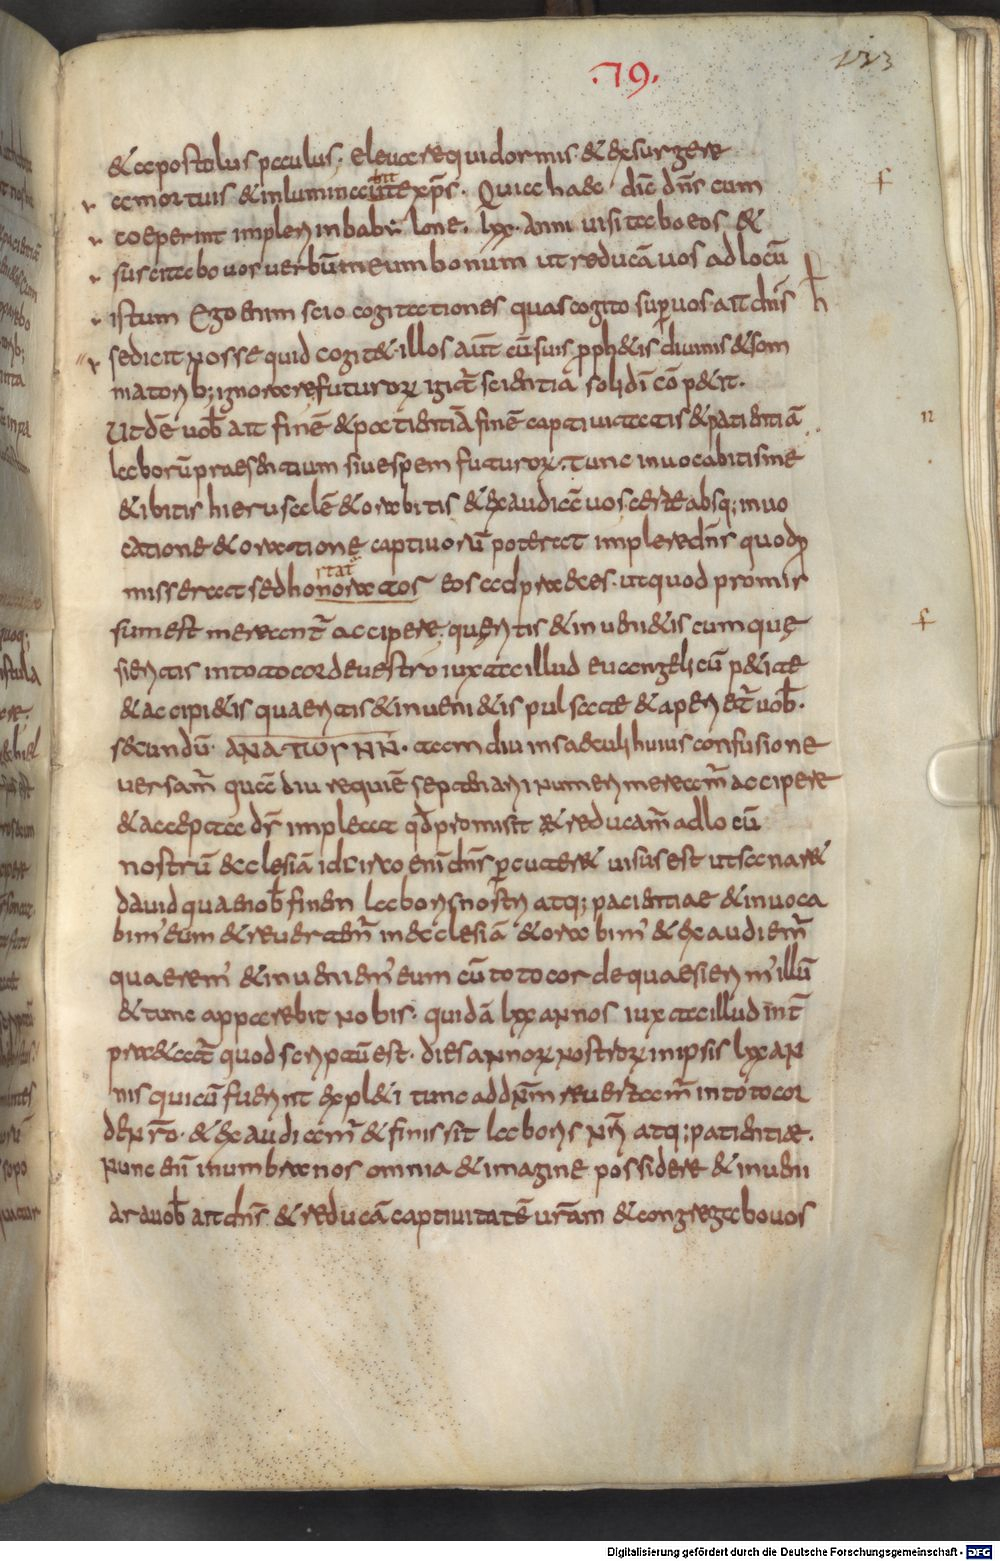 .79.
& apostolus paulus. eleuare qui dormis. & exsurgere
a mortuis & inluminauit te xp̄s. Quia haec dic̄ dn̄s cum
coeperint impleri in babẏ lone. lxx. Anni uisitabo eos &
suscitabo uos uerbū meum bonum ut reducā uos ad locū
istum Ego enim scio cogitationes quas cogito sup uos. ait dn̄s
se dicit nosse quid cogit& illos aūt cū suis pph&is diuinis & som
niatorib; ignorare futurorꝝ igit̄ scientia soli dī cōp&it.
Ut dē uob̄ ait finē & patientiā finē captiuitatis & patientiā
laborū praesentium siue spem futurorꝝ. tunc inuocabitis me
& ibitis hierusalē & orabitis & exaudiā uos certe absq; inuo
catione & oratione captiuorū poterat implere dn̄s quod p
misserat sed honoratos eos ad praeces. ut quod promis
sum est mereant̄ accipere. queritis & inueni&is cum que
sieritis in toto corde uestro iuxta illud euangelicū p&ite
& accipi&is quaeritis & inueni&is pulsate & aperi&̄ uob̄.
secundū. anatwgnn. tam diu in saeculi huius confusione
uersam̄ quā diu requiē septenarii numeri mereām̄ accipere
& accepta dr̄ impleat qd̄ promisit & reducam̄ ad locū
nostrū ecclesiā idcirco enī dn̄s pcutere uisus est ut sanar&
dauid qua enob̄ finem laboris nostri atq; pacientiae & inuoca
bim̄ eum & reuertem̄ in ecclesiā & orabim̄ & exaudiem̄
quaerem̄ & inueniem̄ eum cū toto corde quaesierim̄ illū
& tunc apparebit nobis. quidā lxx annos iuxta illud int̄
pr&at̄ quod scriptū est. dies annorꝝ nostrorꝝ in ipsis lxx an
nis qui cū fuerint expl&i tunc ad dn̄m reuertam̄ in toto cor
de nr̄o. & exaudiam̄ & finis sit laboris nr̄i atq; patientiae.
Nunc enī in umbra nos omnia & imagine possidere & inueni
ar a uob̄ ait dn̄s & reducā captiuitatē ur̄am & congregabo uos
Digitalisierung gefördert durch die Deutsche Forschungsgemeinschaft - DFG